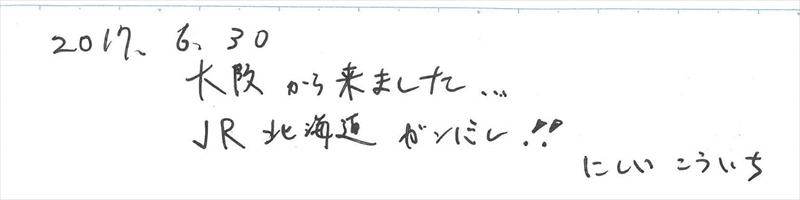 2017、6、30
大阪から来ました...
JR北海道 ガンバレ!!
にしい こういち